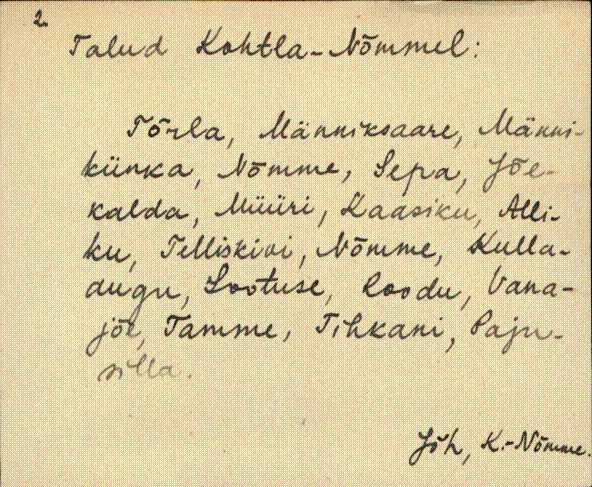 2.
Talud Kohtla-Nõmmel:
Tõrla, Männiksaare, Männi-
künka, Nõmme, Sepa, Jõe-
kalda, Müüri, Kaasiku, Alli-
ku, Telliskivi, Nõmme, Kulla-
augu, Lootuse, Roodu, Vana-
jõe, Tamme, Tihkani, Paju-
silla.
Jõh, K.-Nõmme.